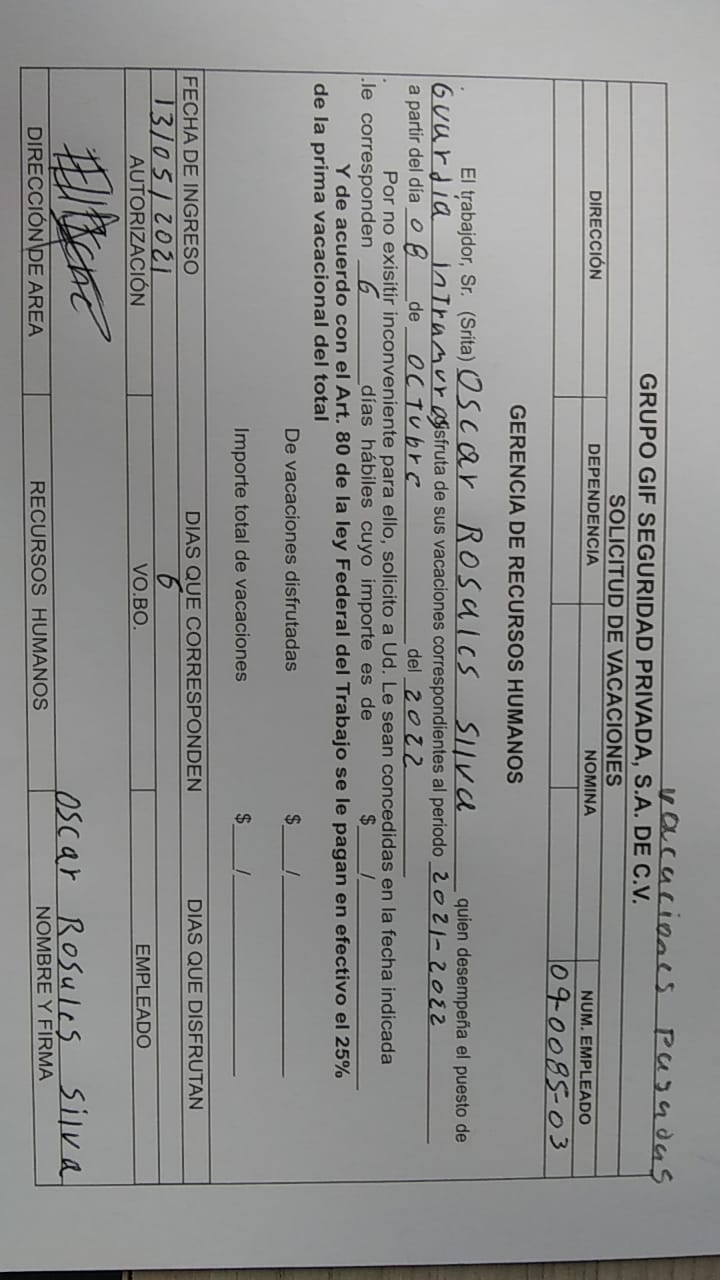 vacaciones pasadas
GRUPO GIF SEGURIDAD PRIVADA, S.A. DE C.V.
SOLICITUD DE VACACIONES
DIRECCIÓN DEPENDENCIA NOMINA NUM. EMPLEADO
09-0085-03
GERENCIA DE RECURSOS HUMANOS
El trabajdor, Sr. (Srita) Oscar Rosales Silva quien desempeña el puesto de
Guardia Intramuros disfruta de sus vacaciones correspondientes al periodo 2021-2022
a partir del día 08 de octubre del 2022
Por no exisitir inconveniente para ello, solicito a Ud. Le sean concedidas en la fecha indicada
.le corresponden 6 días hábiles cuyo importe es de $ /
Y de acuerdo con el Art. 80 de la ley Federal del Trabajo se le pagan en efectivo el 25%
de la prima vacacional del total
De vacaciones disfrutadas $ /
Importe total de vacaciones $ /
FECHA DE INGRESO DIAS QUE CORRESPONDEN DIAS QUE DISFRUTAN
13/05/2021 6
AUTORIZACIÓN VO.BO. EMPLEADO
Oscar Rosales Silva
DIRECCIÓN DE AREA RECURSOS HUMANOS NOMBRE Y FIRMA